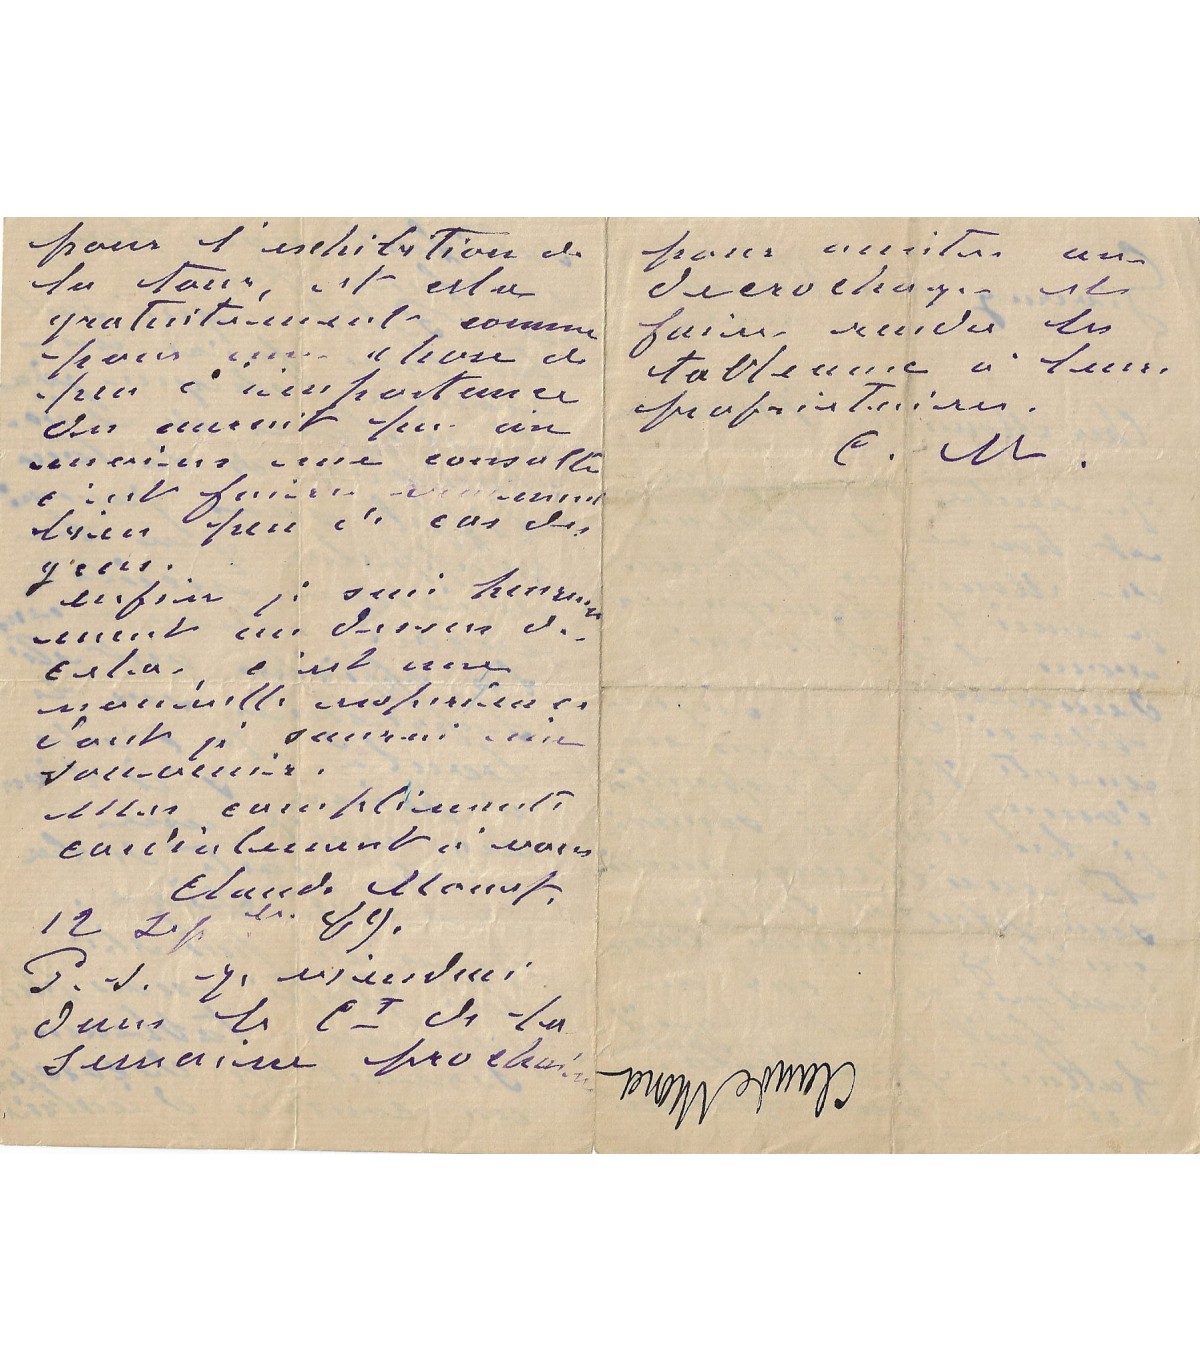 pour l'exhibition de
la tour, et cela
gratuitement comme
pour une chose de
peu d'importance
On aurait pu au
moins me consulter
c'est faire vraiment
bien peu de cas des
gens.
enfin je suis heureuse
ment au dessus de
cela, c'est une
nouvelle expérience
dont je saurai me
souvenir.
Mes compliments
cordialement à vous
Claude Monet.
12 Sept 89.
P. S. Je viendrai
dans le Ct de la
semaine prochaine
pour
decrochage et
faire rendre les
tableaux à leurs
propriétaires.
C. M.
Claude Monet